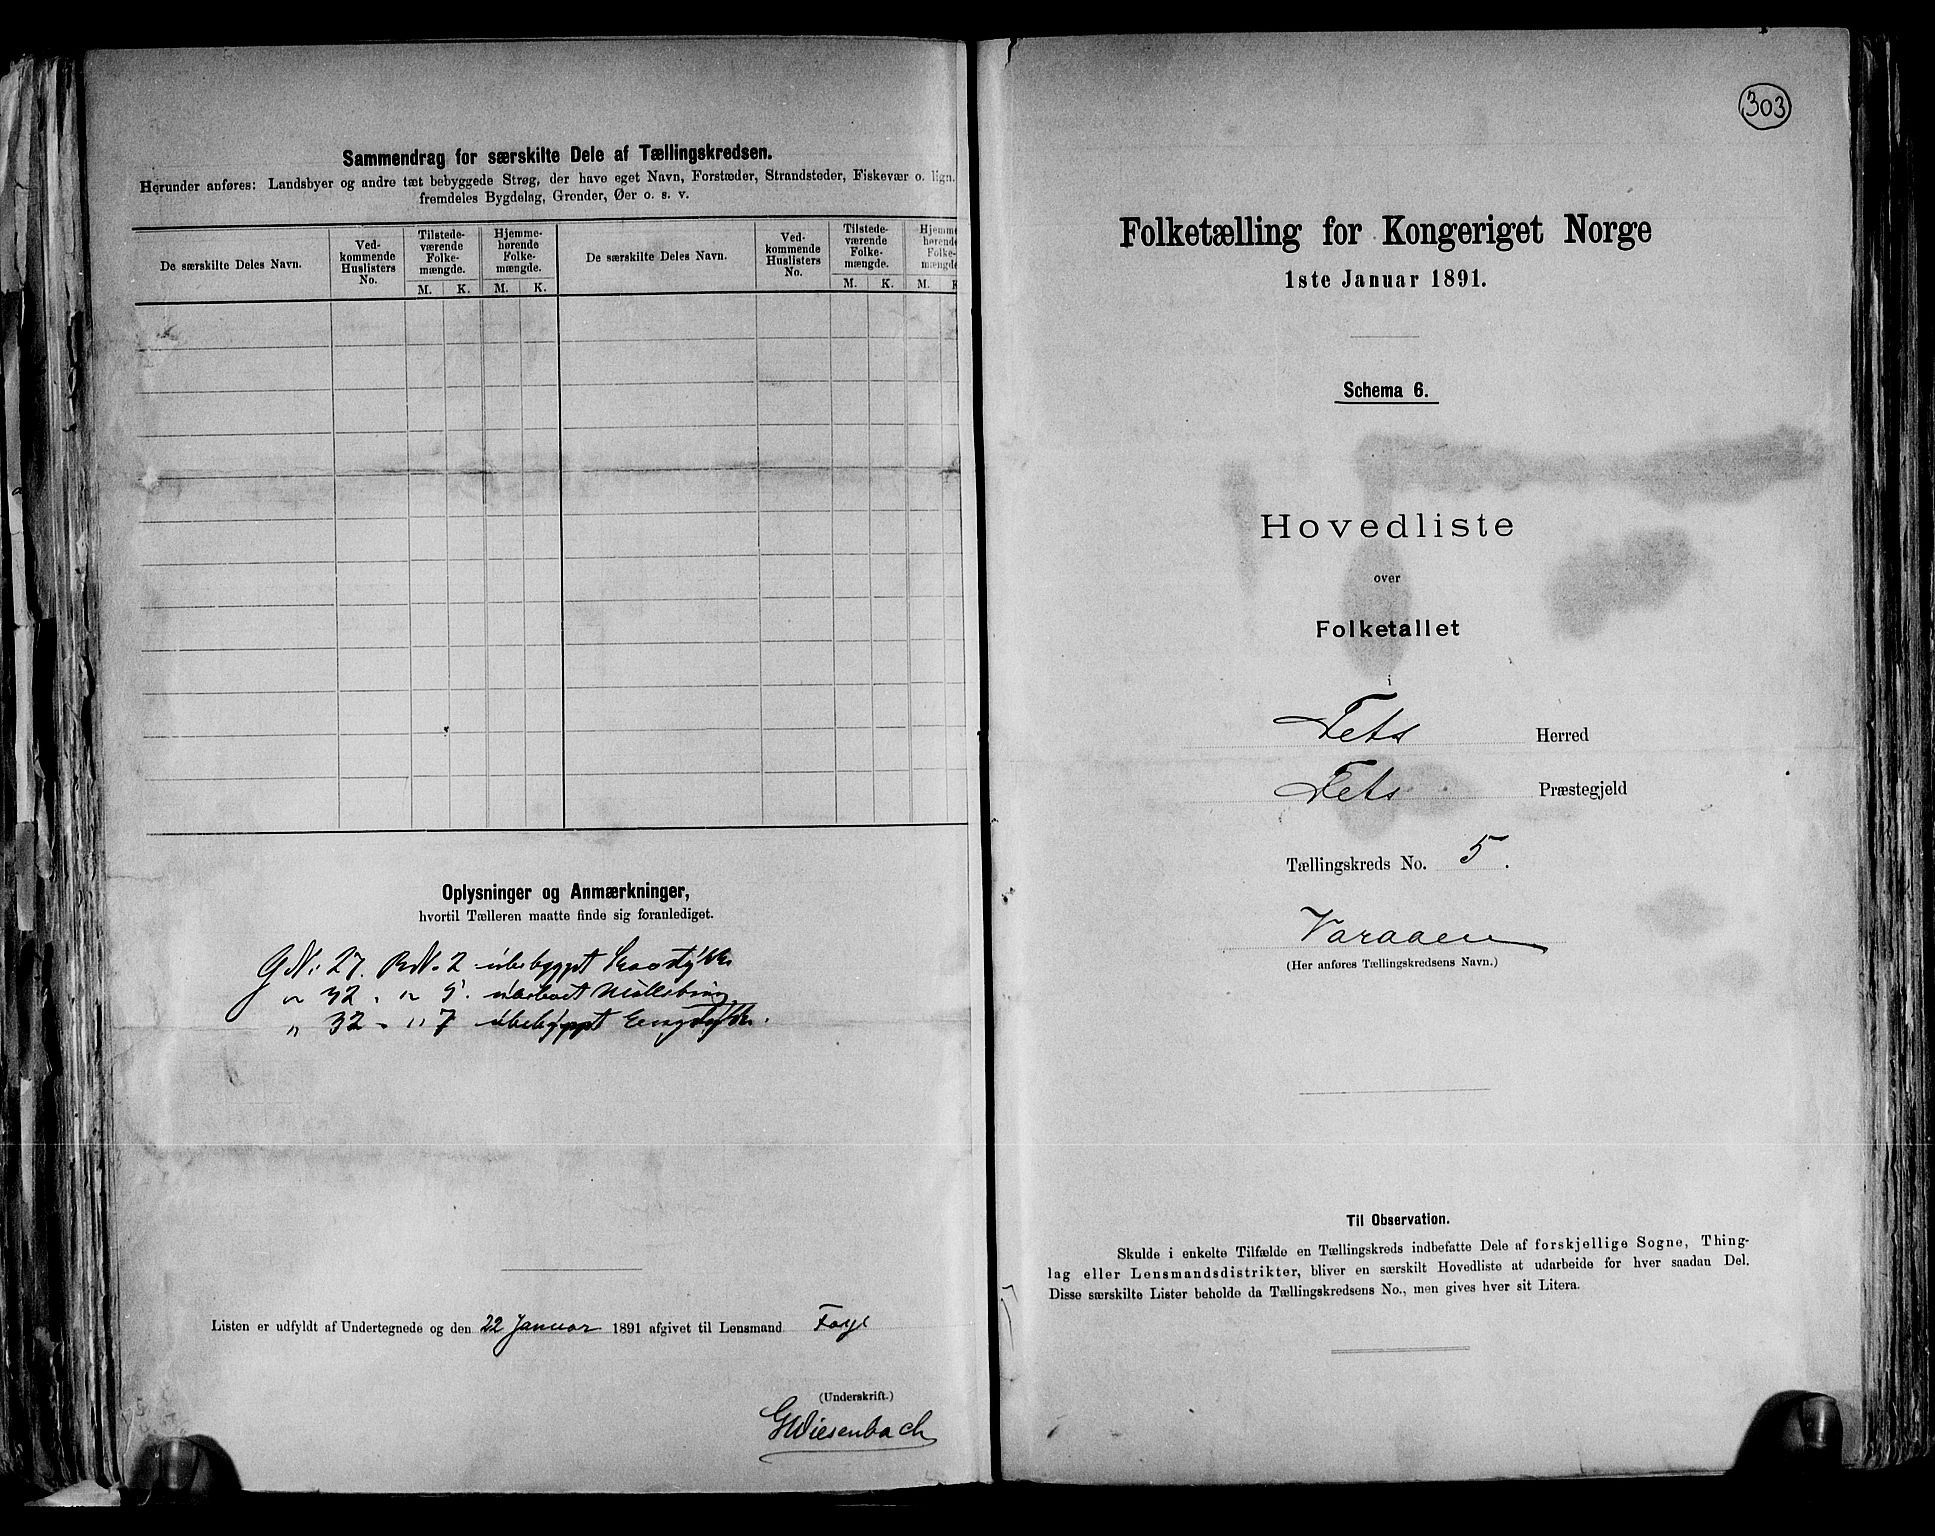 Sammendrag for særskilte Dele af Tællingskredsen.
Herunder anføres: Landsbyer og andre tæt bebyggede Strøg, der have eget Navn, Forstæder, Strandsteder, Fiskevær o. lign.
fremdeles Bygdelag, Grender, Øer o. s. v.
De særskilte Deles Navn.
Ved-
kommende
Huslisters
No.
Tilstede-
værende
Folke-
mængde.
M. K.
Hjemme-
hørende
Folke-
mængde.
M. K.
De særskilte Deles Navn.
Ved-
kommende
Huslisters
No.
Tilstede-
værende
Folke-
mængde.
M. K.
Hjemme
hørende
Folke-
mængde
M. K
Oplysninger og Anmærkninger,
hvortil Tælleren maatte finde sig foranlediget.
GN. 27. BN. 2 ubebygget
" 32 - " 5.
" 32 - " 7 ubebygget Engstykke.
Listen er udfyldt af Undertegnede og den 22 Januar 1891 afgivet til Lensmand
(Underskrift.)
GWiesenbach
303
Folketælling for Kongeriget Norge
1ste Januar 1891.
Schema 6.
Hovedliste
over
Folketallet
i
Fets Herred
Fets Præstegjeld
Tællingskreds No. 5.
Varaaen
(Her anføres Tællingskredsens Navn.)
Til Observation.
Skulde i enkelte Tilfælde en Tællingskreds indbefatte Dele af forskjellige Sogne, Thing-
lag eller Lensmandsdistrikter, bliver en særskilt Hovedliste at udarbeide for hver saadan Del.
Disse særskilte Lister beholde da Tællingskredsens No., men gives hver sit Litera.